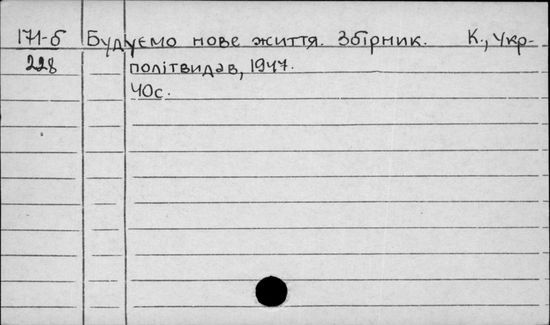 171-б Будуємо нове життя. Збірник. К., Укр-
228 політвидав, 1947.
40с.